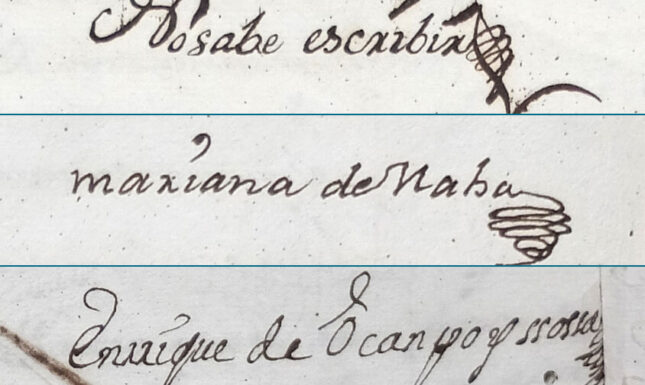 No sabe escribir
mariana de Naba
Enrrique de Ocampo y